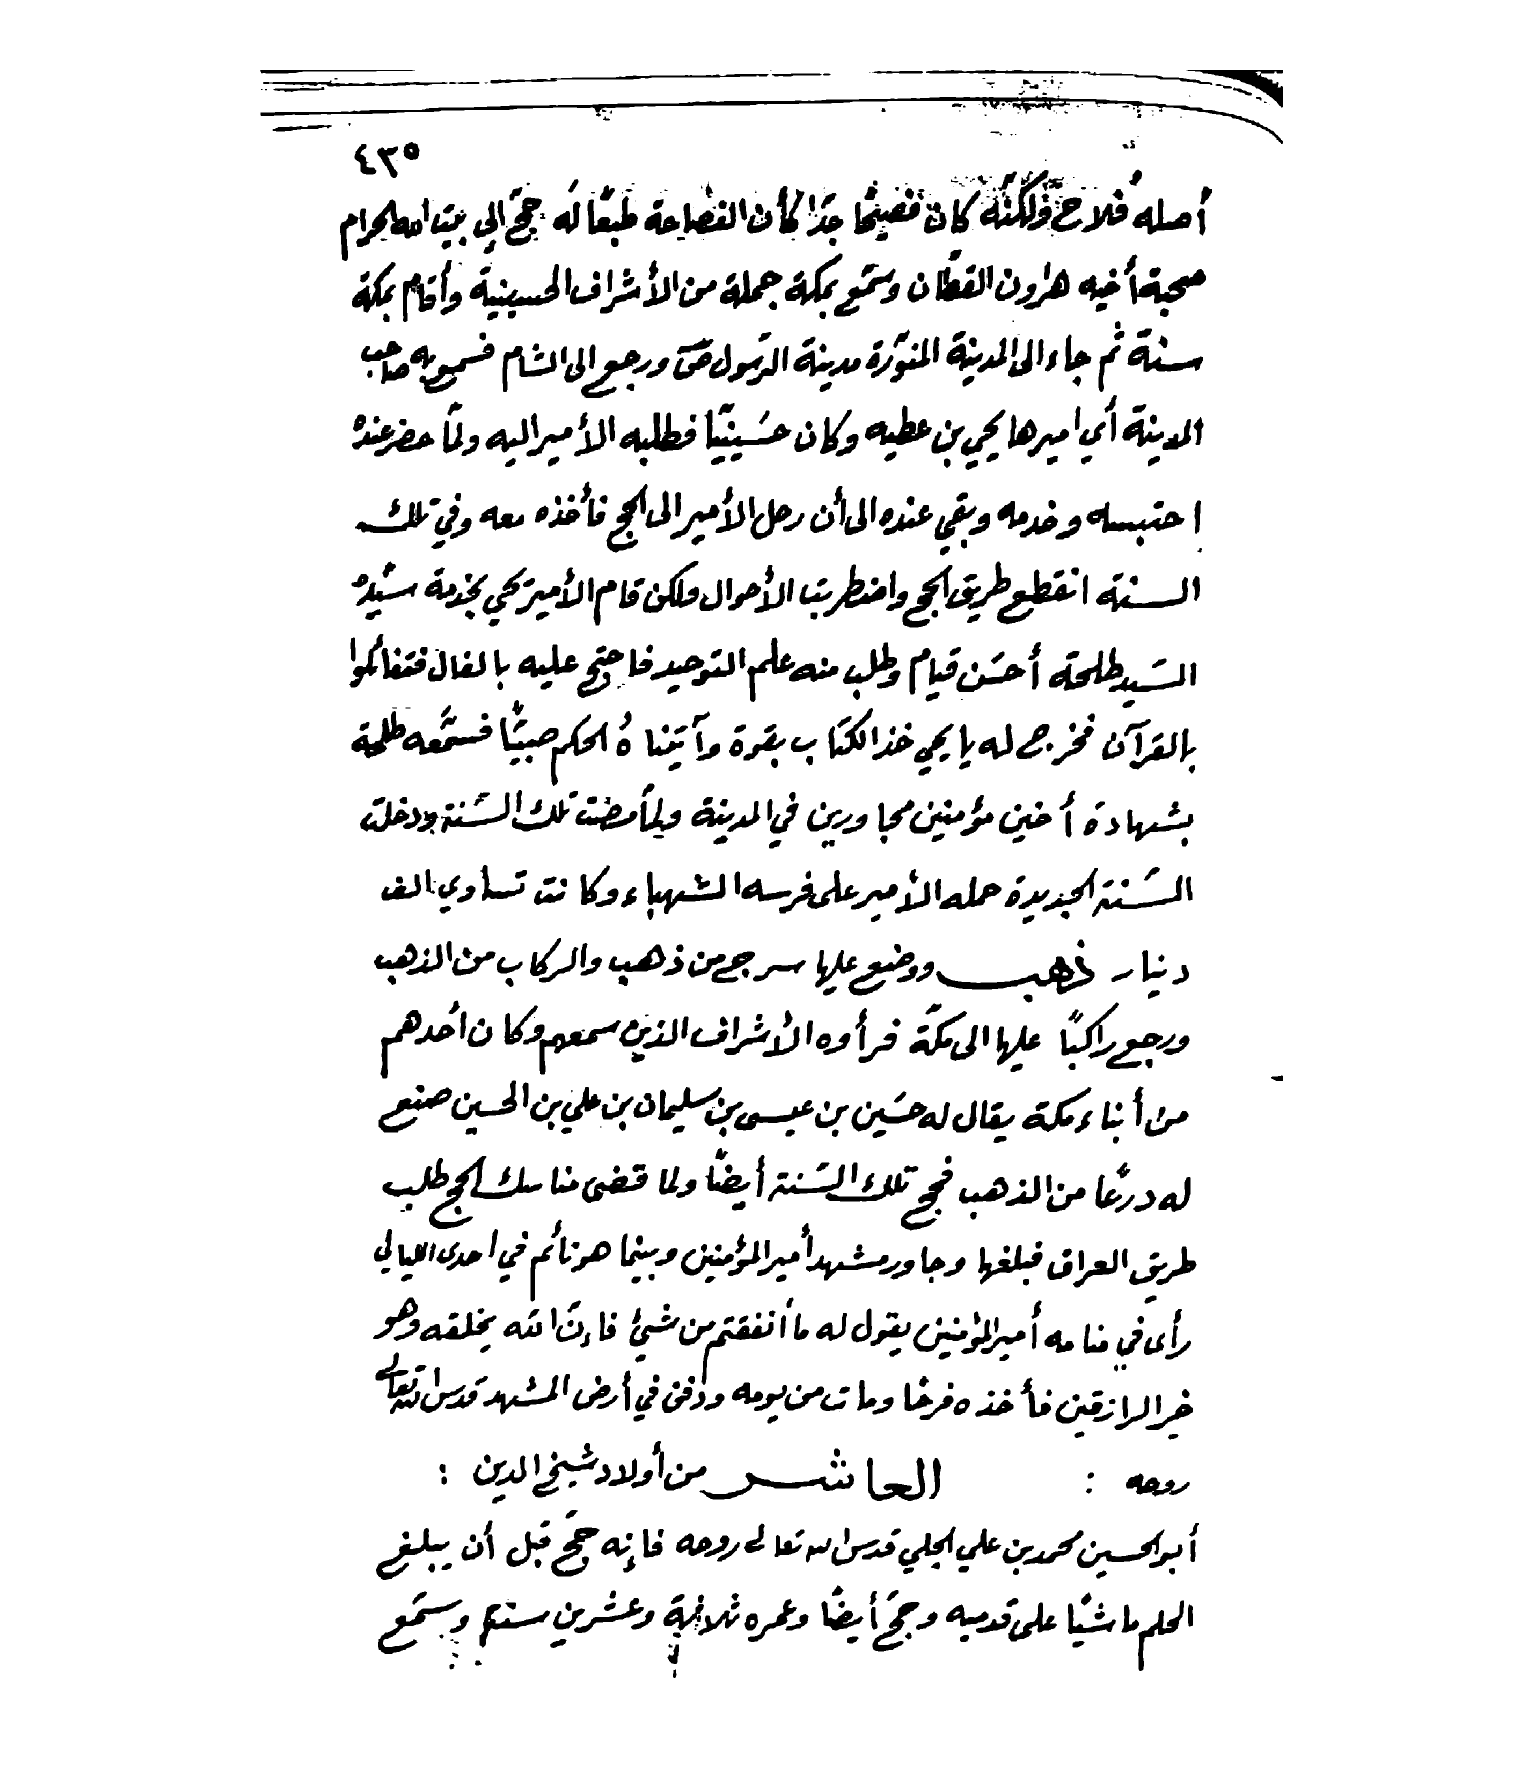 ٤٣٥
أصلهُ فلاح ولكنّه كان فصيحًا جدًا كأن الفصاحة طبعًا لَه حجّ إلى بيت الله الحرام
صحبة أخيه هٰرون القطّان وسمّع بمكة جملة من الأشراف الحسينية وأقام بمكة
سنة ثم جاء الى المدينة المنوّرة مدينة الرّسول صٓ ورجع الى الشام فسمع به صاحب
المدينة أي اميرها يحيي بن عطيه وكان حسَينيًّا فطلبه الأمير اليه ولمّا حضر عنده
احتبسه وخدمه وبقي عنده الى أن رحل الأمير الى الحج فأخذه معه وفي تلك
السنة انقطع طريق الحج واضطربت الأحوال ولكن قام الأمير يحيي بخدمة سيّده
السَيد طلحة أحسَن قيام وطلب منه علم التوحيد فاحتج عليه بالفال فتفائلوا
بالقرآن فخرج له يا يحيي خذ الكتاب بقوة وآتيناهُ الحكم صبيًّا فسمَّعه طلحة
بشهادة أخين مؤمنين مجاورين في المدينة ولمّا مضت تلك السَنة ودخلت
السَنة الجديدة حمله الأمير على فرسه الشهباء وكانت تساوي الف
دينار ذهب ووضع عليها سرج من ذهب والركاب من الذهب
ورجع راكبًا عليها الى مكّة فرأوه الأشراف الذين سمعهم وكان أحدهم
من أبناء مكة يقال له حسَين بن عيسى بن سليمان بن علي بن الحسين صنع
له درعًا من الذهب فحج تلك السَنة أيضًا ولما قضى مناسك الحج طلب
طريق العراق فبلغها وجاور مشهد أمير المؤمنين وبينما هو نائم في احدى الليالي
رأى في منامه أمير المؤمنين يقول له ما أنفقتم من شيئ فإنّ الله يخلقه وهو
خير الرازقين فأخذه فرحًا ومات من يومه ودفن في أرض المشهد قدس الله تعالى
روحه : العاشر من أولاد شيخ الدين :
أبو الحسين محمد بن علي الجلي قدس الله تعالى روحه فإنه حجّ قبل أن يبلغ
الحلم ماشيًا على قدميه وحجّ أيضًا وعمره ثلاثة وعشرين سنة وسمّع